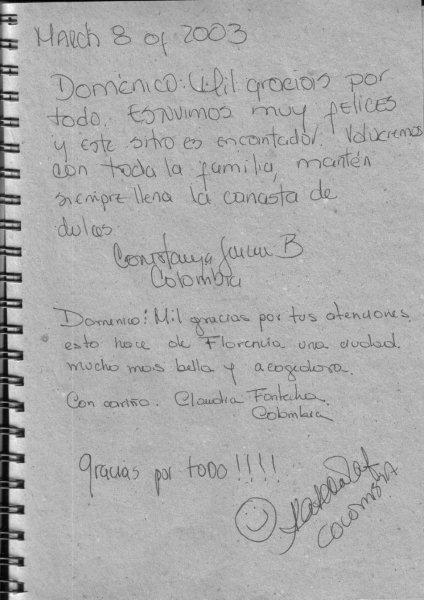 March 8 of 2003
Doménico: Mil gracias por
todo. Estuvimos muy felices
y este sitio es encantador. Volveremos
con toda la familia, mantén
siempre llena la canasta de
dulces.
B
Colombia
Domenico: Mil gracias por tus atenciones
esto hace de Florencia una ciudad
mucho mas bella y acogedora.
Con cariño. Claudia
Colombia
gracias por todo!!!!
COLOMBIA